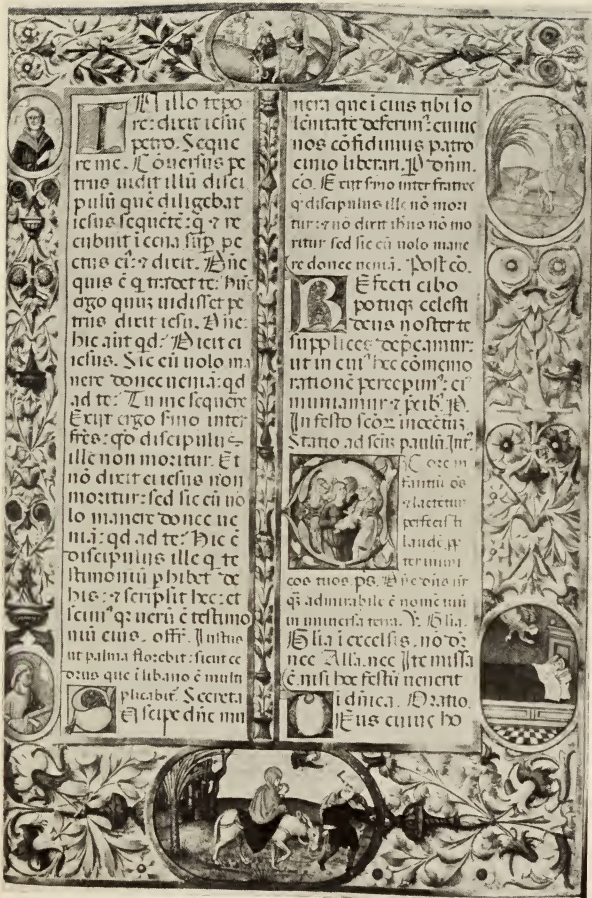 IN illo tēpo
re: dixit iesus
petro. Seque
re me. Cōuersus pe
trus uidit illū disci
pulū quē diligebat
iesus sequētē: q̄ ⁊ re
cubuit ī cena sup̄ pe
ctus eī: ⁊ dixit. Dn̄e
quis ē q̄ tradet te: hūc
ergo quuʒ uidisset pe
trus dixit iesu. Dn̄e:
hic aūt qd: Dicit ei
iesus. Sic eū uolo ma
nere donec ueniā: qd
ad te: Tu me sequere
Exijt ergo s̄mo inter
fr̄es: qd̄ discipulus
ille non moritur. Et
nō dixit ei iesus non
moritur: sed sic eū uo
lo manere donec ue
niā: qd ad te: Hic ē
discipulus ille q̄ te
stimoniū p̄hibet de
his: ⁊ scripsit hec: et
scim⁹ qʒ uerū ē testimo
niū eius. offr̄. Iustus
ut palma florebit: sicut ce
drus que ī libano ē multi
plicabit̄. Secreta
SUscipe dn̄e mu
nera que ī eius tibi so
lēnitate deferim⁹: cuius
nos cōfidimus patro
cinio liberari. P dn̄m.
cō. Exijt s̄mo inter fratres
q̄ discipulus ille nō mori
tur: ⁊ nō dixit ihus nō mo
ritur sed sic eū uolo mane
re donec ueniā. Post cō.
REfecti cibo
potuqʒ celesti
deus noster te
supplices dep̄camur:
ut in cui⁹ hec cōmemo
rationē percepim⁹: ei⁹
muniamur ⁊ p̄cib⁹. P.
In festo sc̄oʒ innocētiū
Statio ad sc̄m paulū Int̄.
EX ore in
fantiū ds̄
⁊ lactētiū
perfecisti
laudē pp̄
ter inimi
cos tuos. ps. Dn̄e dn̄s nr̄
q̄ admirabile ē nomē tuū
in uniuersa terra. V̄. Glīa.
Glīa ī excelsis. nō dr̄
nec Allā. nec Ite missa
ē. nisi hec festū uenerit
ī dn̄ica. Oratio.
DEus cuius ho